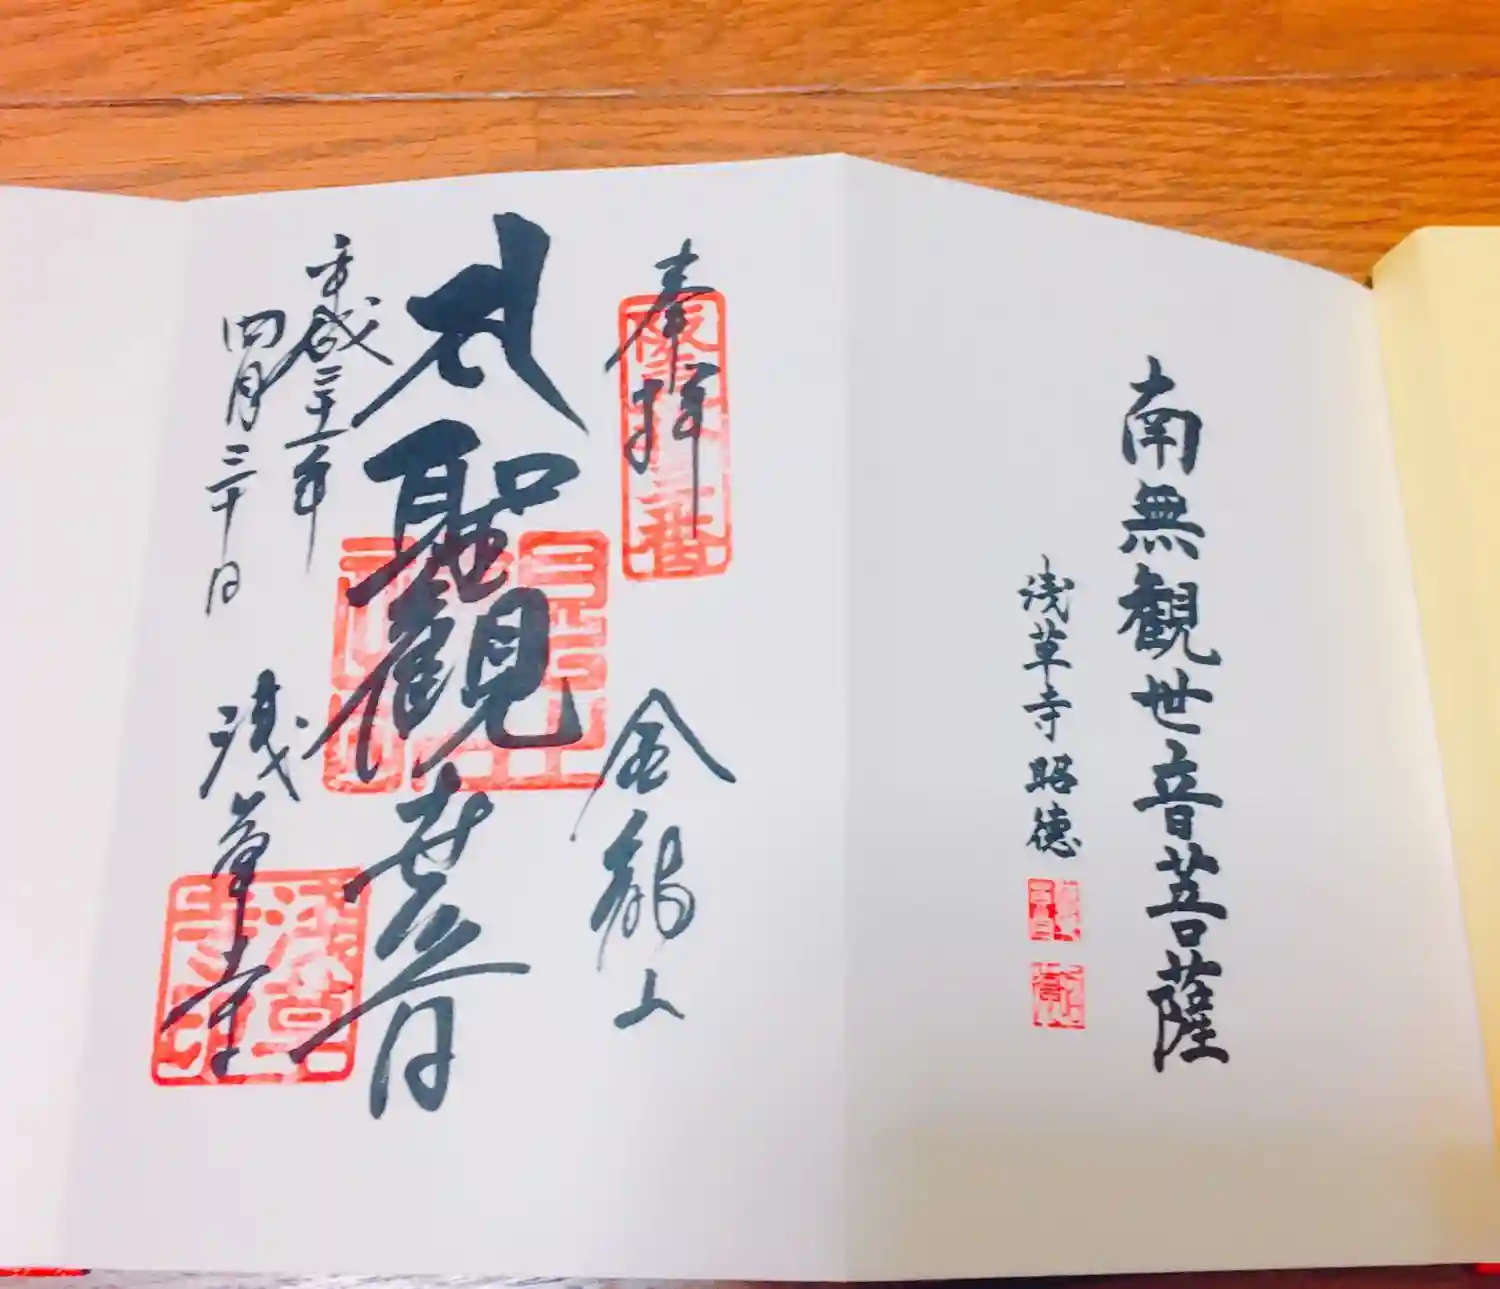 南無観世音菩薩
浅草寺昭徳
奉拝
坂東十三番
金龍山
聖観世音
平成三十一年
四月三十日
浅草寺